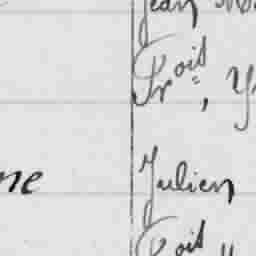 Jean
Fr^ois, Y
ne Julien
F^ois